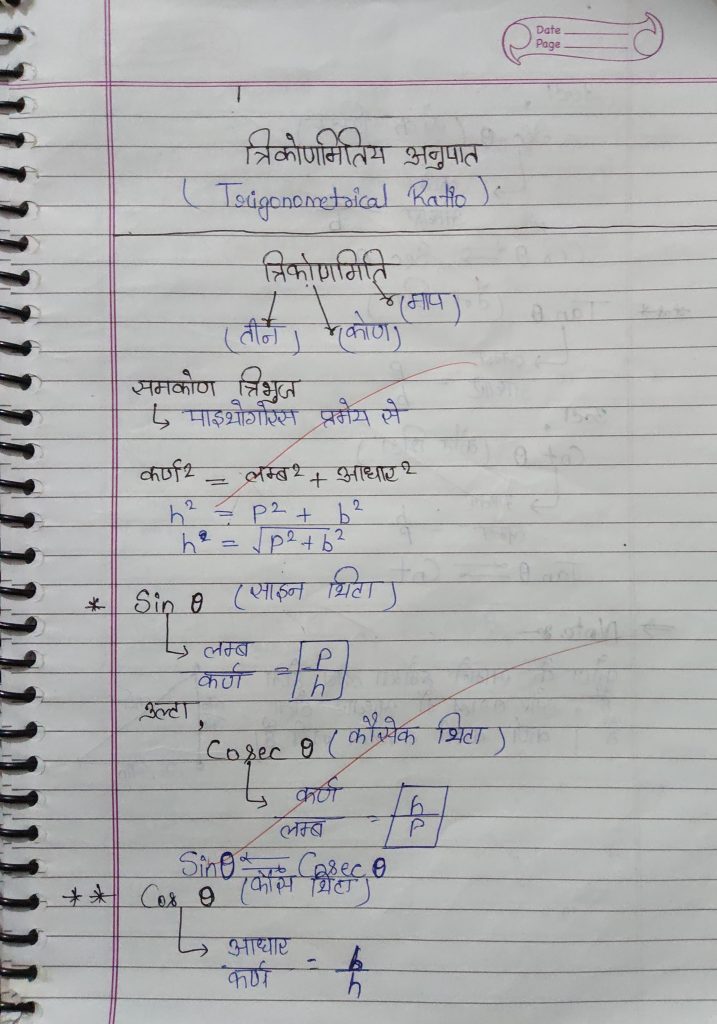 Date
Page
त्रिकोणमितिय अनुपात
( Trigonometrical Ratio )
त्रिकोणमिति
(माप)
(तीन) (कोण)
समकोण त्रिभुज
↳ पाइथोगोरस प्रमेय से
कर्ण² = लम्ब² + आधार²
h² = P² + b²
h² = √P² + b²
* Sin θ (साइन थिटा)
↳ लम्ब/कर्ण = P/h
उल्टा,
Cosec θ (कौसेक थिटा)
↳ कर्ण/लम्ब = h/P
Sinθ ⇌ Cosec θ
** Cos θ (कौस थिटा)
↳ आधार/कर्ण = b/h